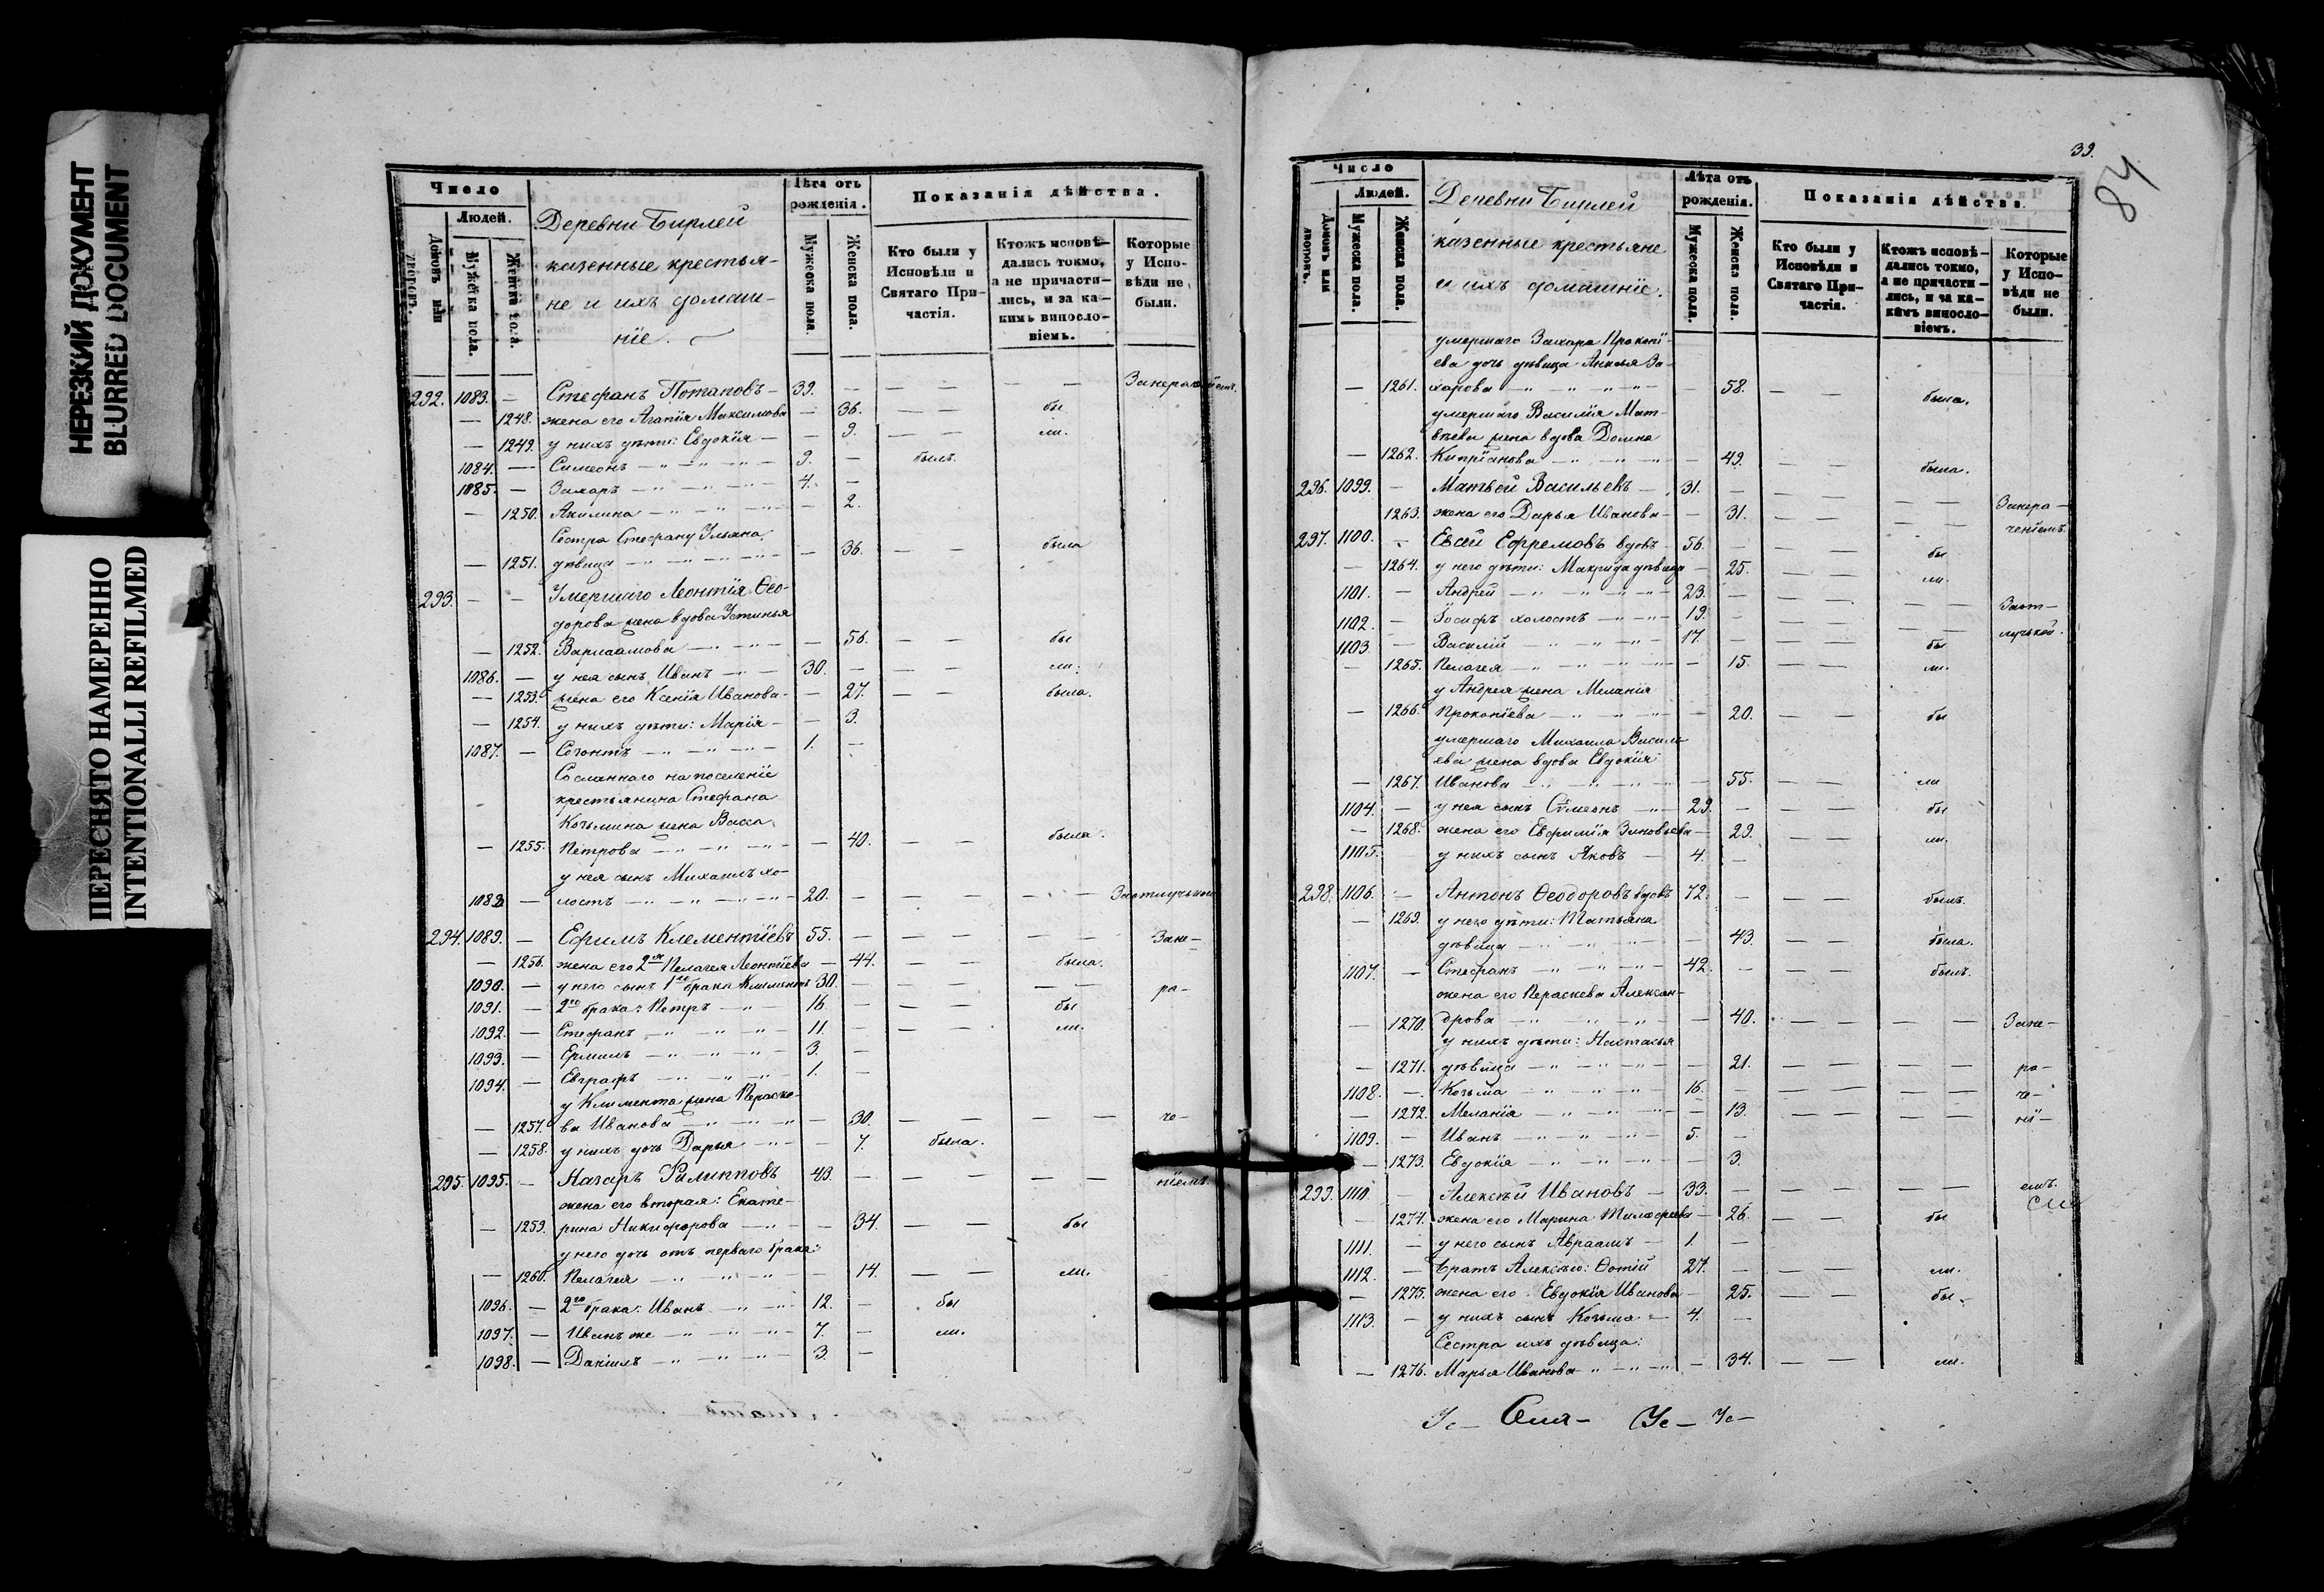 НЕРЕЗКИЙ ДОКУМЕНТ
BLURRED DOCUMENT
ПЕРЕСНЯТО НАМЕРЕННО
INTENTIONALLI REFILMED
Число
Людей.
Домовъ или дворовъ.
Мужеска пола.
Женска пола.
Деревни Бирлей
казенные крестья-
не и ихъ домаш-
ніе.
Лѣта отъ рожденія.
Мужеска пола.
Женска пола.
Показанія дѣйства.
Кто были у Исповѣди и Святаго При-частія.
Ктожъ исповѣ-дались токмо, а не причасти-лись, и за ка-кимъ винosло-віемъ.
Которые у Испо-вѣди не были.
292. 1083. — Стефанъ Потаповъ — 39. — — — — — Занераченіемъ.
— 1248. жена его Агапія Максимова — 36. — — бы
— 1249. у нихъ дѣти: Евдокія — — 9. — — ли.
1084. — Симеонъ — 9. — былъ.
1085. — Захаръ — 4. —
— 1250. Акилина — — 2.
Сестра Стефану Ульяна
— 1251. дѣвица — — 36. — — была
293. — — Умершаго Леонтія Ѳео-
дорова жена вдова Устинья
— 1252. Варлаамова — — 56. — — бы
1086. — у нея сынъ Иванъ — 30. — — — ли.
— 1253. жена его Ксенія Иванова — — 27. — — была.
— 1254. у нихъ дѣти: Марія — — 3.
1087. — Созонтъ — 1. —
Сосланнаго на поселеніе
крестьянина Стефана
Козьмина жена Васса
— 1255. Петрова — — 40. — — была.
у нея сынъ Михаилъ хо-
1088. — лостъ — 20. — — — — — Заотлучькою
294. 1089. — Ефимъ Клементіевъ 55. — — — — — Зане-
— 1256. жена его 2я Пелагея Леонтіева — 44. — — была.
1090. — у него сынъ 1го брака Климентъ 30. — — — — — ра-
1091. — 2го брака: Петръ — 16. — — — бы
1092. — Стефанъ — 11. — — — ли.
1093. — Ермилъ — 3. —
1094. — Евграфъ — 1. —
у Климента жена Параске-
— 1257. ва Иванова — — 30. — — — — че-
— 1258. у нихъ дочь Дарья — — 7. была.
295. 1095. — Назаръ Филипповъ 43. — — — — — ніемъ.
жена его вторая: Екате-
— 1259. рина Никифорова — — 34. — — бы
у него дочь отъ перваго брака:
— 1260. Пелагея — — 14. — — ли.
1096. — 2го брака: Иванъ — 12. — бы
1097. — Иванъ же — 7. — ли.
1098. — Даніилъ — 3. —
39.
84
Число
Людей.
Домовъ или дворовъ.
Мужеска пола.
Женска пола.
Деревни Бирлей
казенные крестьяне
и ихъ домашніе.
Лѣта отъ рожденія.
Мужеска пола.
Женска пола.
Показанія дѣйства.
Кто были у Исповѣди и Святаго При-частія.
Ктожъ исповѣ-дались токмо, а не причасти-лись, и за ка-кимъ винosло-віемъ.
Которые у Испо-вѣди не были.
умершаго Захара Прокопі-
ева дочь дѣвица За-
— 1261. харова — — 58. — — была.
умершаго Василія Мат-
вѣева жена вдова Домна
— 1262. Кипріанова — — 49. — — была.
296. 1099. — Матвѣй Васильевъ — 31. — — — — — Занера-
1263. жена его Дарья Иванова — — 31. — — — — ченіемъ.
297. 1100. — Евсей Ефремовъ вдовъ 56. — — — бы
— 1264. у него дѣти: Макрида дѣвица — 25. — — ли.
1101. — Андрей — 23. — — — — — Заот-
1102. — Іосифъ холостъ — 19. — — — — — лучькой.
1103. — Василій — 17. — — — бы
— 1265. Пелагея — — 15. — — ли.
у Андрея жена Меланія
— 1266. Прокопіева — — 20. — — бы
умершаго Михаила Василь-
ева жена вдова Евдокія
— 1267. Иванова — — 55. — — ли
1104. — у нея сынъ Сѵмеонъ — 29. — — — бы
— 1268. жена его Евфимія Зиновьева — 29. — — ли.
1105. — у нихъ сынъ Яковъ — 4. —
298. 1106. — Антонъ Ѳеодоровъ вдовъ 72. — — — былъ.
— 1269. у него дѣти: Татьяна
дѣвица — — 43. — — была.
1107. — Стефанъ — 42. — — — былъ.
жена его Параскева Алексан-
— 1270. дрова — — 40. — — — — Зане-
у нихъ дѣти: Настасья
— 1271. дѣвица — — 21. — — — — ра-
1108. — Козьма — 16. — — — — — че-
— 1272. Меланія — — 13. — — — — ні-
1109. — Иванъ — 5. —
— 1273. Евдокія — — 3.
299. 1110. — Алексѣй Ивановъ — 33. — — — — — емъ.
— 1274. жена его Марина Тимофеева — 26. — — бы
1111. — у него сынъ Авраамъ — 1. —
1112. — Братъ Алексѣю: Фотій 27. — — — ли.
— 1275. жена его Евдокія Иванова — 25. — — бы-
1113. — у нихъ сынъ Козьма — 4. —
Сестра ихъ дѣвица:
— 1276. Марья Иванова — — 34. — — ли.